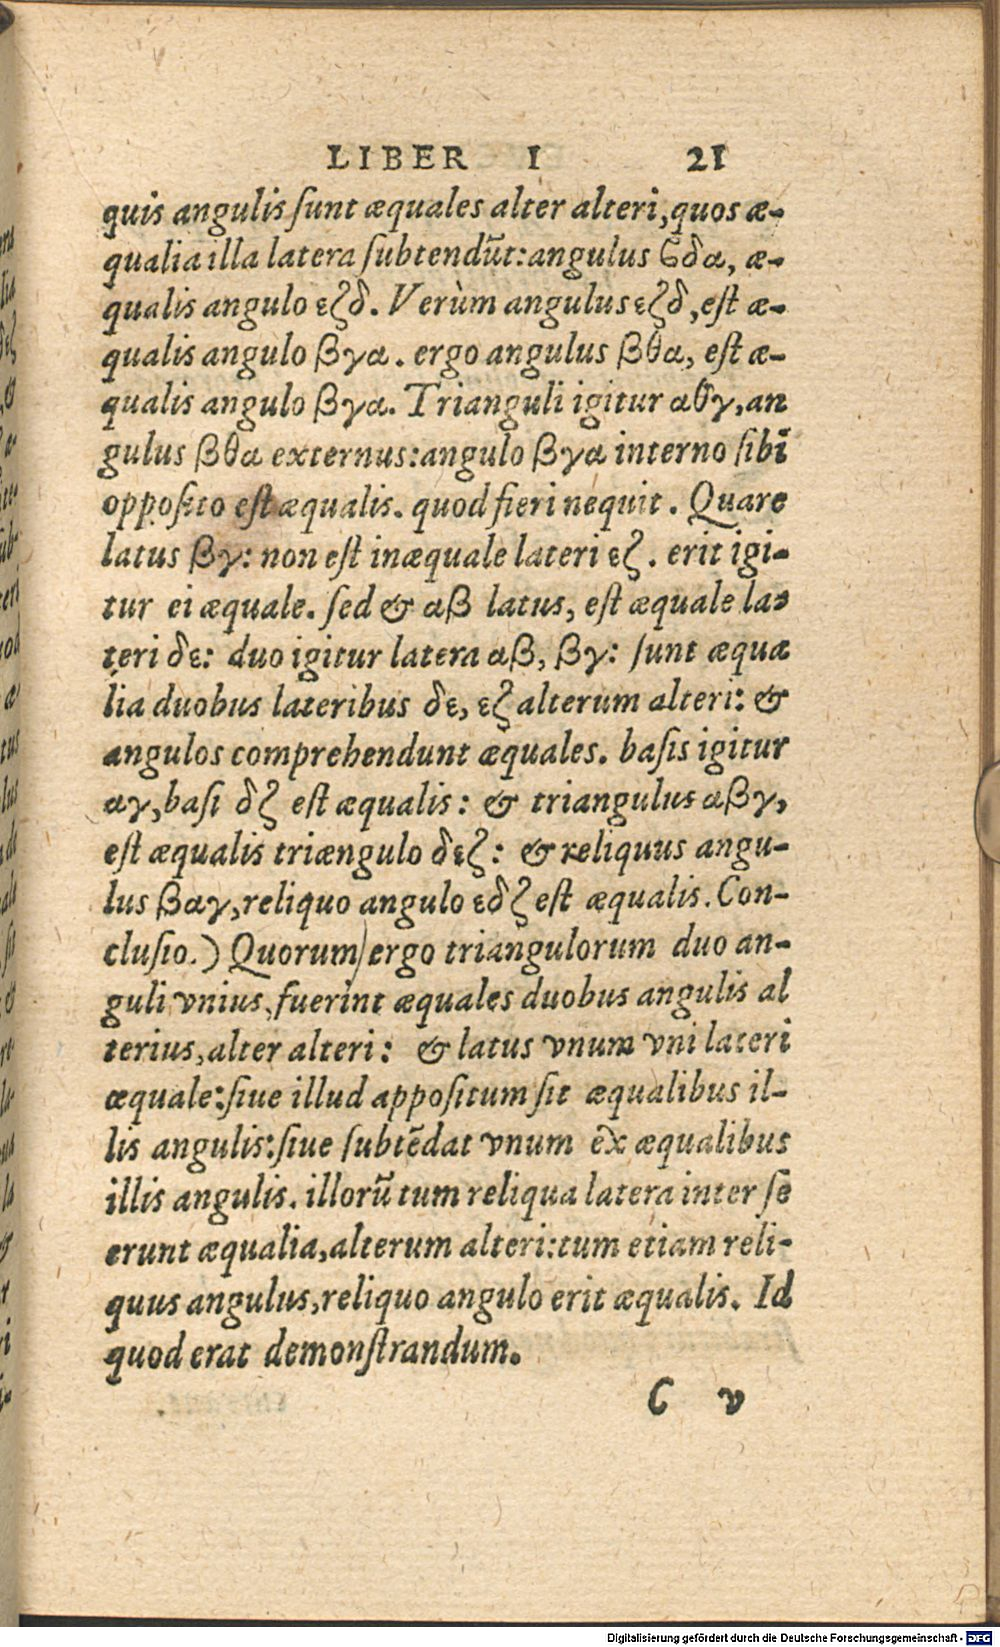 LIBER I 21
quis angulis ſunt æquales alter alteri, quos æ-
qualia illa latera ſubtendūt: angulus ϐδα, æ-
qualis angulo εζδ. Verùm angulus εζδ, eſt æ-
qualis angulo βγα. ergo angulus βθα, eſt æ-
qualis angulo βγα. Trianguli igitur αθγ, an
gulus βθα externus: angulo βγα interno ſibi
oppoſito eſt æqualis. quod fieri nequit. Quare
latus βγ: non eſt inæquale lateri εζ. erit igi-
tur ei æquale. ſed & αβ latus, eſt æquale la-
teri δε: duo igitur latera αβ, βγ: ſunt æqua
lia duobus lateribus δε, εζ alterum alteri: &
angulos comprehendunt æquales. baſis igitur
αγ, baſi δζ eſt æqualis: & triangulus αβγ,
eſt æqualis triængulo δεζ: & reliquus angu-
lus βαγ, reliquo angulo εδζ eſt æqualis. Con-
cluſio.) Quorum ergo triangulorum duo an-
guli vnius, fuerint æquales duobus angulis al
terius, alter alteri: & latus vnum vni lateri
æquale: ſiue illud appoſitum ſit æqualibus il-
lis angulis: ſiue ſubtēdat vnum ex æqualibus
illis angulis. illorū tum reliqua latera inter ſe
erunt æqualia, alterum alteri: tum etiam reli-
quus angulus, reliquo angulo erit æqualis. Id
quod erat demonſtrandum.
C v
Digitalisierung gefördert durch die Deutsche Forschungsgemeinschaft - DFG